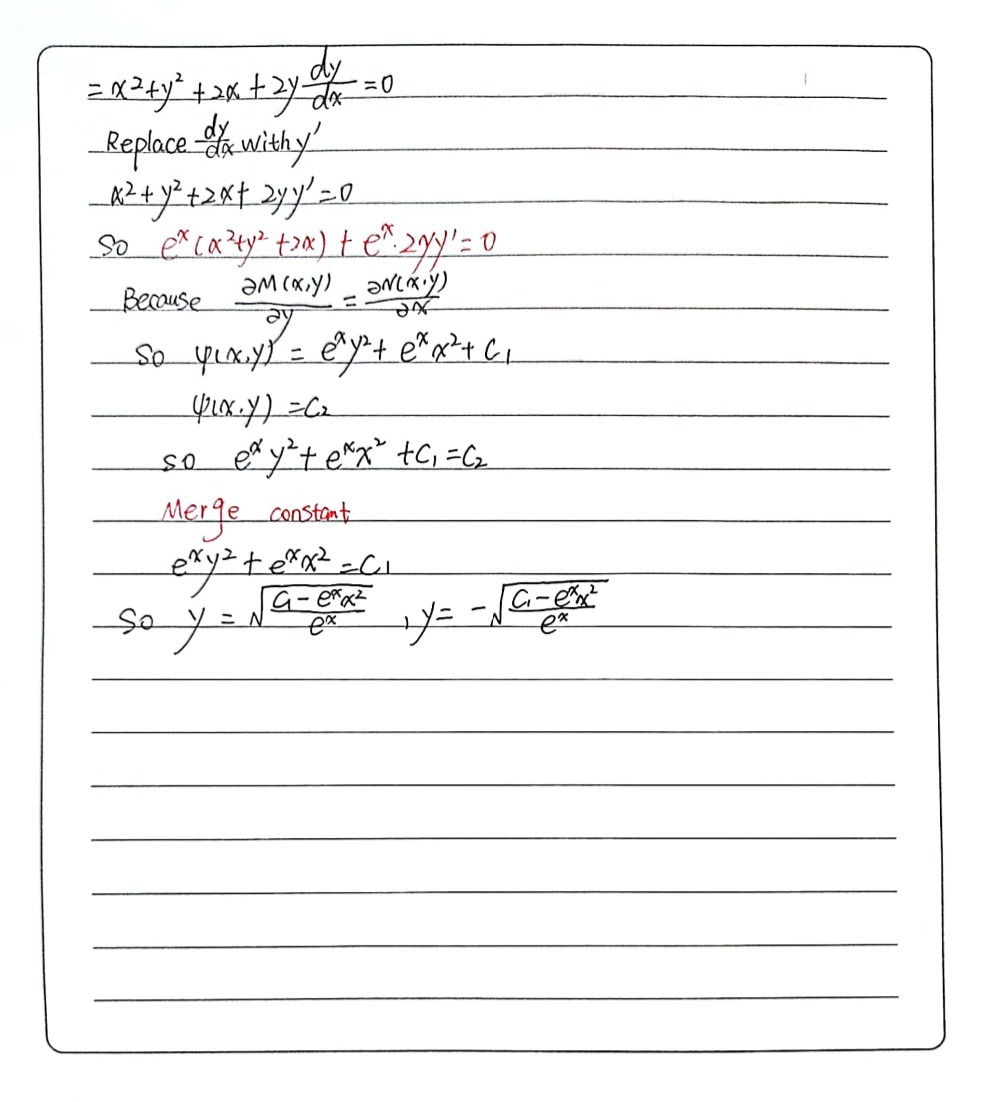 = x²+y² +2x + 2y dy/dx = 0
Replace dy/dx with y'
x² + y² +2x+ 2yy' = 0
So eˣ(x²+y² +2x) + eˣ·2yy' = 0
Because ∂M(x,y)/∂y = ∂N(x,y)/∂x
So ψ(x,y) = eˣy²+ eˣx²+ C₁
ψ(x,y) = C₂
so eˣy²+ eˣx² +C₁ = C₂
Merge constant
eˣy² + eˣx² = C₁
So y = √((C₁ - eˣx²)/eˣ) , y = -√((C₁ - eˣx²)/eˣ)